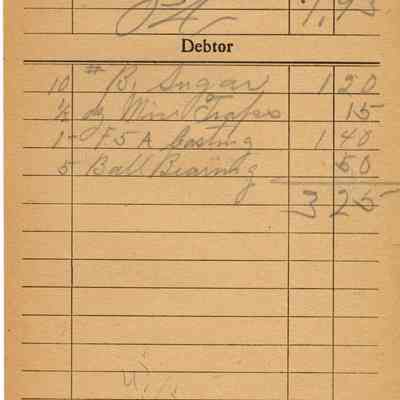 7.95
Debtor
10 # B. Sugar 1 20
½ dz Min Traps 15
1- F5A Casting 1 40
5 Ball Bearing 50
3 25